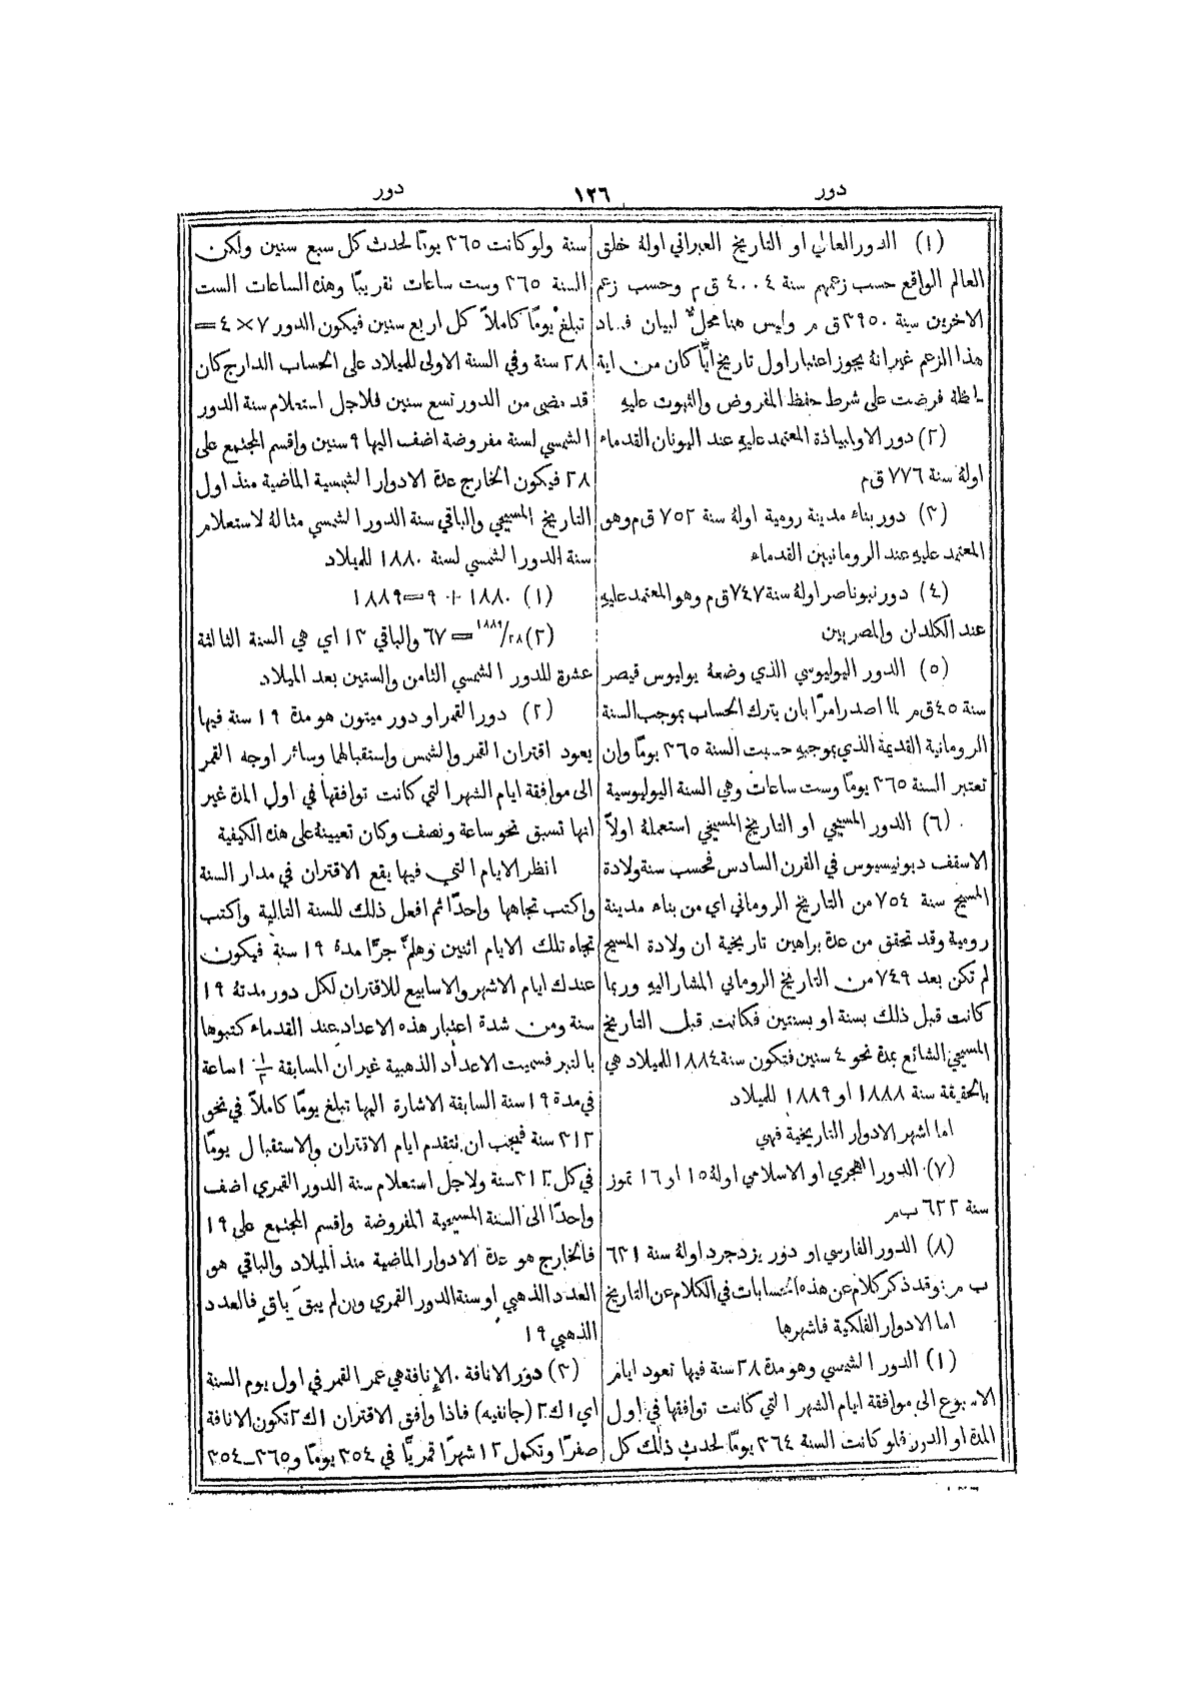 دور
١٢٦
دور
(١) الدور العالمي او التاريخ العبراني اولهُ خلق
العالم الواقع حسب زعمهم سنة ٤٠٠٤ ق م وحسب زعم
الاخرين سنة ٣٩٥٠ ق م وليس هنا محلٌّ لبيان فساد
هذا الزعم غير انهُ يجوز اعتبار اول تاريخ ايًّا كان من اية
لحظة فرضت على شرط حفظ المفروض والثبوت عليهِ
(٢) دور الاولمبياذة المعتمد عليهِ عند اليونان القدماء
اولهُ سنة ٧٧٦ ق م
(٣) دور بناء مدينة رومية اولهُ سنة ٧٥٢ ق م وهو
المعتمد عليهِ عند الرومانيين القدماء
(٤) دور نبوناصر اولهُ سنة ٧٤٧ ق م وهو المعتمد عليهِ
عند الكلدان والمصريين
(٥) الدور اليوليوسي الذي وضعهُ يوليوس قيصر
سنة ٤٥ ق م لما اصدر امرًا بان يترك الحساب بموجب السنة
الرومانية القديمة الذي بموجبهِ حسبت السنة ٣٦٥ يومًا وان
تعتبر السنة ٣٦٥ يومًا وست ساعات وهي السنة اليوليوسية
(٦) الدور المسيحي او التاريخ المسيحي استعملهُ اولاً
الاسقف ديونيسيوس في القرن السادس فحسب سنة ولادة
المسيح سنة ٧٥٤ من التاريخ الروماني اي من بناء مدينة
رومية وقد تحقق من عدة براهين تاريخية ان ولادة المسيح
لم تكن بعد ٧٤٩ من التاريخ الروماني المشار اليهِ وربما
كانت قبل ذلك بسنة او بسنتين فكانت قبل التاريخ
المسيحي الشائع بمدة نحو ٤ سنين فتكون سنة ١٨٨٤ للميلاد هي
بالحقيقة سنة ١٨٨٨ او ١٨٨٩ للميلاد
اما اشهر الادوار التاريخية فهي
(٧) الدور الهجري او الاسلامي اولهُ ١٥ او ١٦ تموز
سنة ٦٢٢ ب م
(٨) الدور الفارسي او دور يزدجرد اولهُ سنة ٦٣١
ب م وقد ذكر كلام عن هذه الحسابات في الكلام عن التاريخ
اما الادوار الفلكية فاشهرها
(١) الدور الشمسي وهو مدة ٢٨ سنة فيها تعود ايام
الاسبوع الى موافقة ايام الشهر التي كانت توافقها في اول
المدة او الدور فلو كانت السنة ٣٦٤ يومًا لحدث ذلك كل
سنة ولو كانت ٣٦٥ يومًا لحدث كل سبع سنين ولكن
السنة ٣٦٥ وست ساعات تقريبًا وهذه الساعات الست
تبلغ يومًا كاملاً كل اربع سنين فيكون الدور ٧×٤=
٢٨ سنة وفي السنة الاولى للميلاد على الحساب الدارج كان
قد مضى من الدور تسع سنين فلاجل استعلام سنة الدور
الشمسي لسنة مفروضة اضف اليها ٩ سنين واقسم المجتمع على
٢٨ فيكون الخارج عدة الادوار الشمسية الماضية منذ اول
التاريخ المسيحي والباقي سنة الدور الشمسي مثالهُ لاستعلام
سنة الدور الشمسي لسنة ١٨٨٠ للميلاد
(١) ١٨٨٠ + ٩ = ١٨٨٩
(٢) ١٨٨٩/٢٨ = ٦٧ والباقي ١٣ اي هي السنة الثالثة
عشرة للدور الشمسي الثامن والستين بعد الميلاد
(٢) دور القمر او دور ميتون هو مدة ١٩ سنة فيها
يعود اقتران القمر والشمس واستقبالها وسائر اوجه القمر
الى موافقة ايام الشهر التي كانت توافقها في اول المدة غير
انها تسبق نحو ساعة ونصف وكان تعيينهُ على هذه الكيفية
انظر الايام التي فيها يقع الاقتران في مدار السنة
واكتب تجاهها واحدًا ثم افعل ذلك للسنة التالية واكتب
تجاه تلك الايام اثنين وهلمَّ جرًّا مدة ١٩ سنة فيكون
عندك ايام الاشهر والاسابيع للاقتران لكل دور مدتهُ ١٩
سنة ومن شدة اعتبار هذه الاعداد عند القدماء كتبوها
بالتبر فسميت الاعداد الذهبية غير ان المسابقة ١ ١/٢ ساعة
في مدة ١٩ سنة السابقة الاشارة اليها تبلغ يومًا كاملاً في نحو
٣١٢ سنة فيجب ان تتقدم ايام الاقتران والاستقبال يومًا
في كل ٣١٢ سنة ولاجل استعلام سنة الدور القمري اضف
واحدًا الى السنة المسيحية المفروضة واقسم المجتمع على ١٩
فالخارج هو عدة الادوار الماضية منذ الميلاد والباقي هو
العدد الذهبي او سنة الدور القمري وان لم يبقَ باقٍ فالعدد
الذهبي ١٩
(٣) دور الانافة. الانافة هي عمر القمر في اول يوم السنة
اي ١ ك٢ (جانفيه) فاذا وافق الاقتران ١ ك٢ تكون الانافة
صفرًا وتكمل ١٢ شهرًا قمريًّا في ٣٥٤ يومًا و٣٦٥–٣٥٤